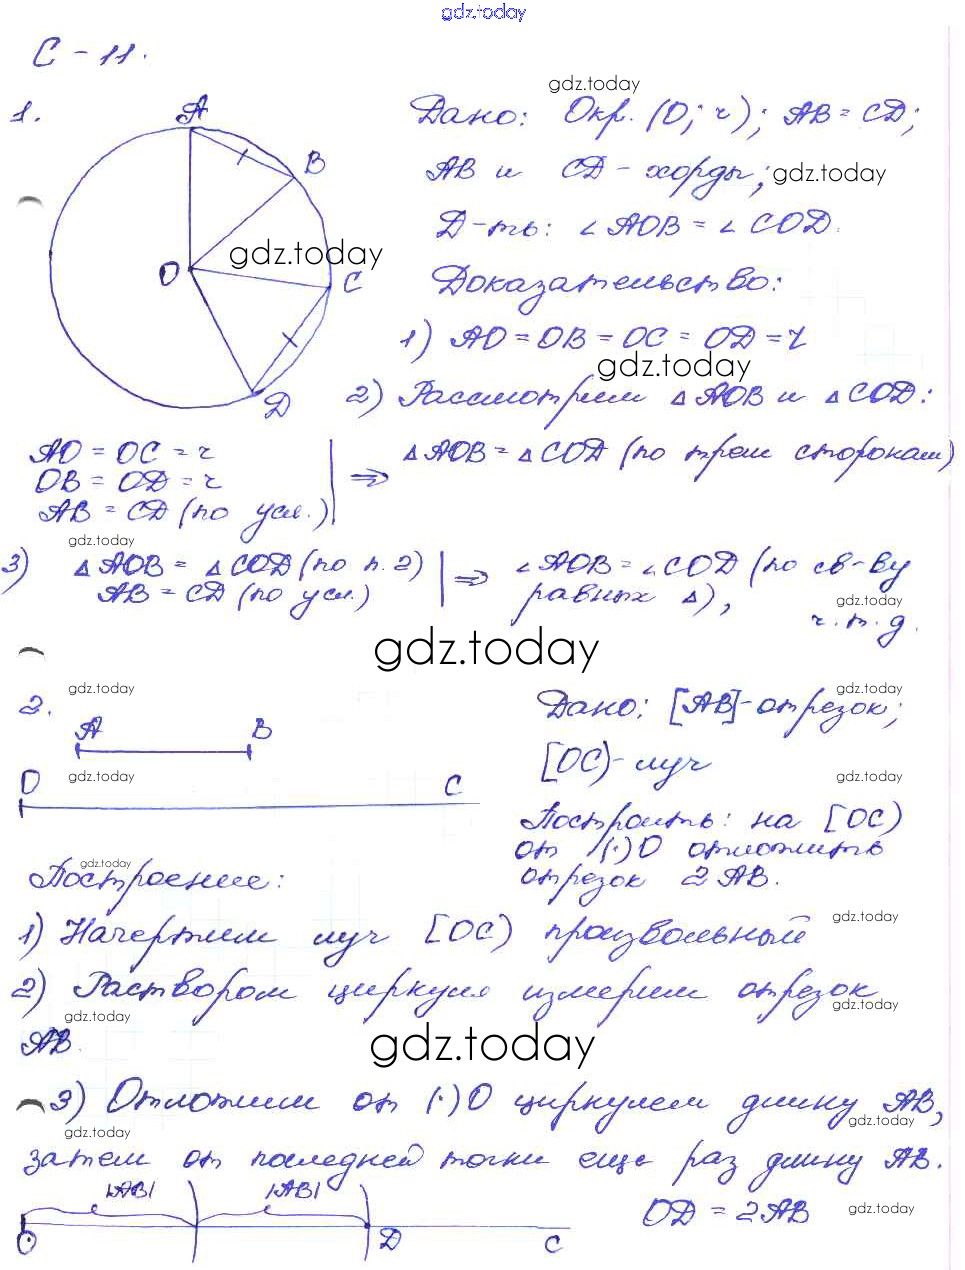 gdz.today
С - 11.
gdz.today
1.
A
B
O
C
D
Дано: Окр. (O; r); AB = CD;
AB и CD - хорды;
gdz.today
Д-ть: ∠AOB = ∠COD.
gdz.today
Доказательство:
1) AO = OB = OC = OD = r
gdz.today
2) Рассмотрим △AOB и △COD:
AO = OC = r
OB = OD = r
AB = CD (по усл.)
⇒ △AOB = △COD (по трем сторонам)
gdz.today
3) △AOB = △COD (по п. 2)
AB = CD (по усл.)
⇒ ∠AOB = ∠COD (по св-ву
равных △),
gdz.today
ч.т.д.
gdz.today
2.
gdz.today
A B
gdz.today
O C
Дано: [AB] - отрезок;
gdz.today
[OC) - луч
gdz.today
Построить: на [OC)
от (·)O отложить
отрезок 2AB.
gdz.today
Построение:
1) Начертим луч [OC) произвольный
gdz.today
2) Раствором циркуля измерим отрезок
gdz.today
gdz.today
AB.
gdz.today
3) Отложим от (·)O циркулем длину AB,
gdz.today
gdz.today
затем от последней точки еще раз длину AB.
|AB| |AB|
O D C
OD = 2AB
gdz.today